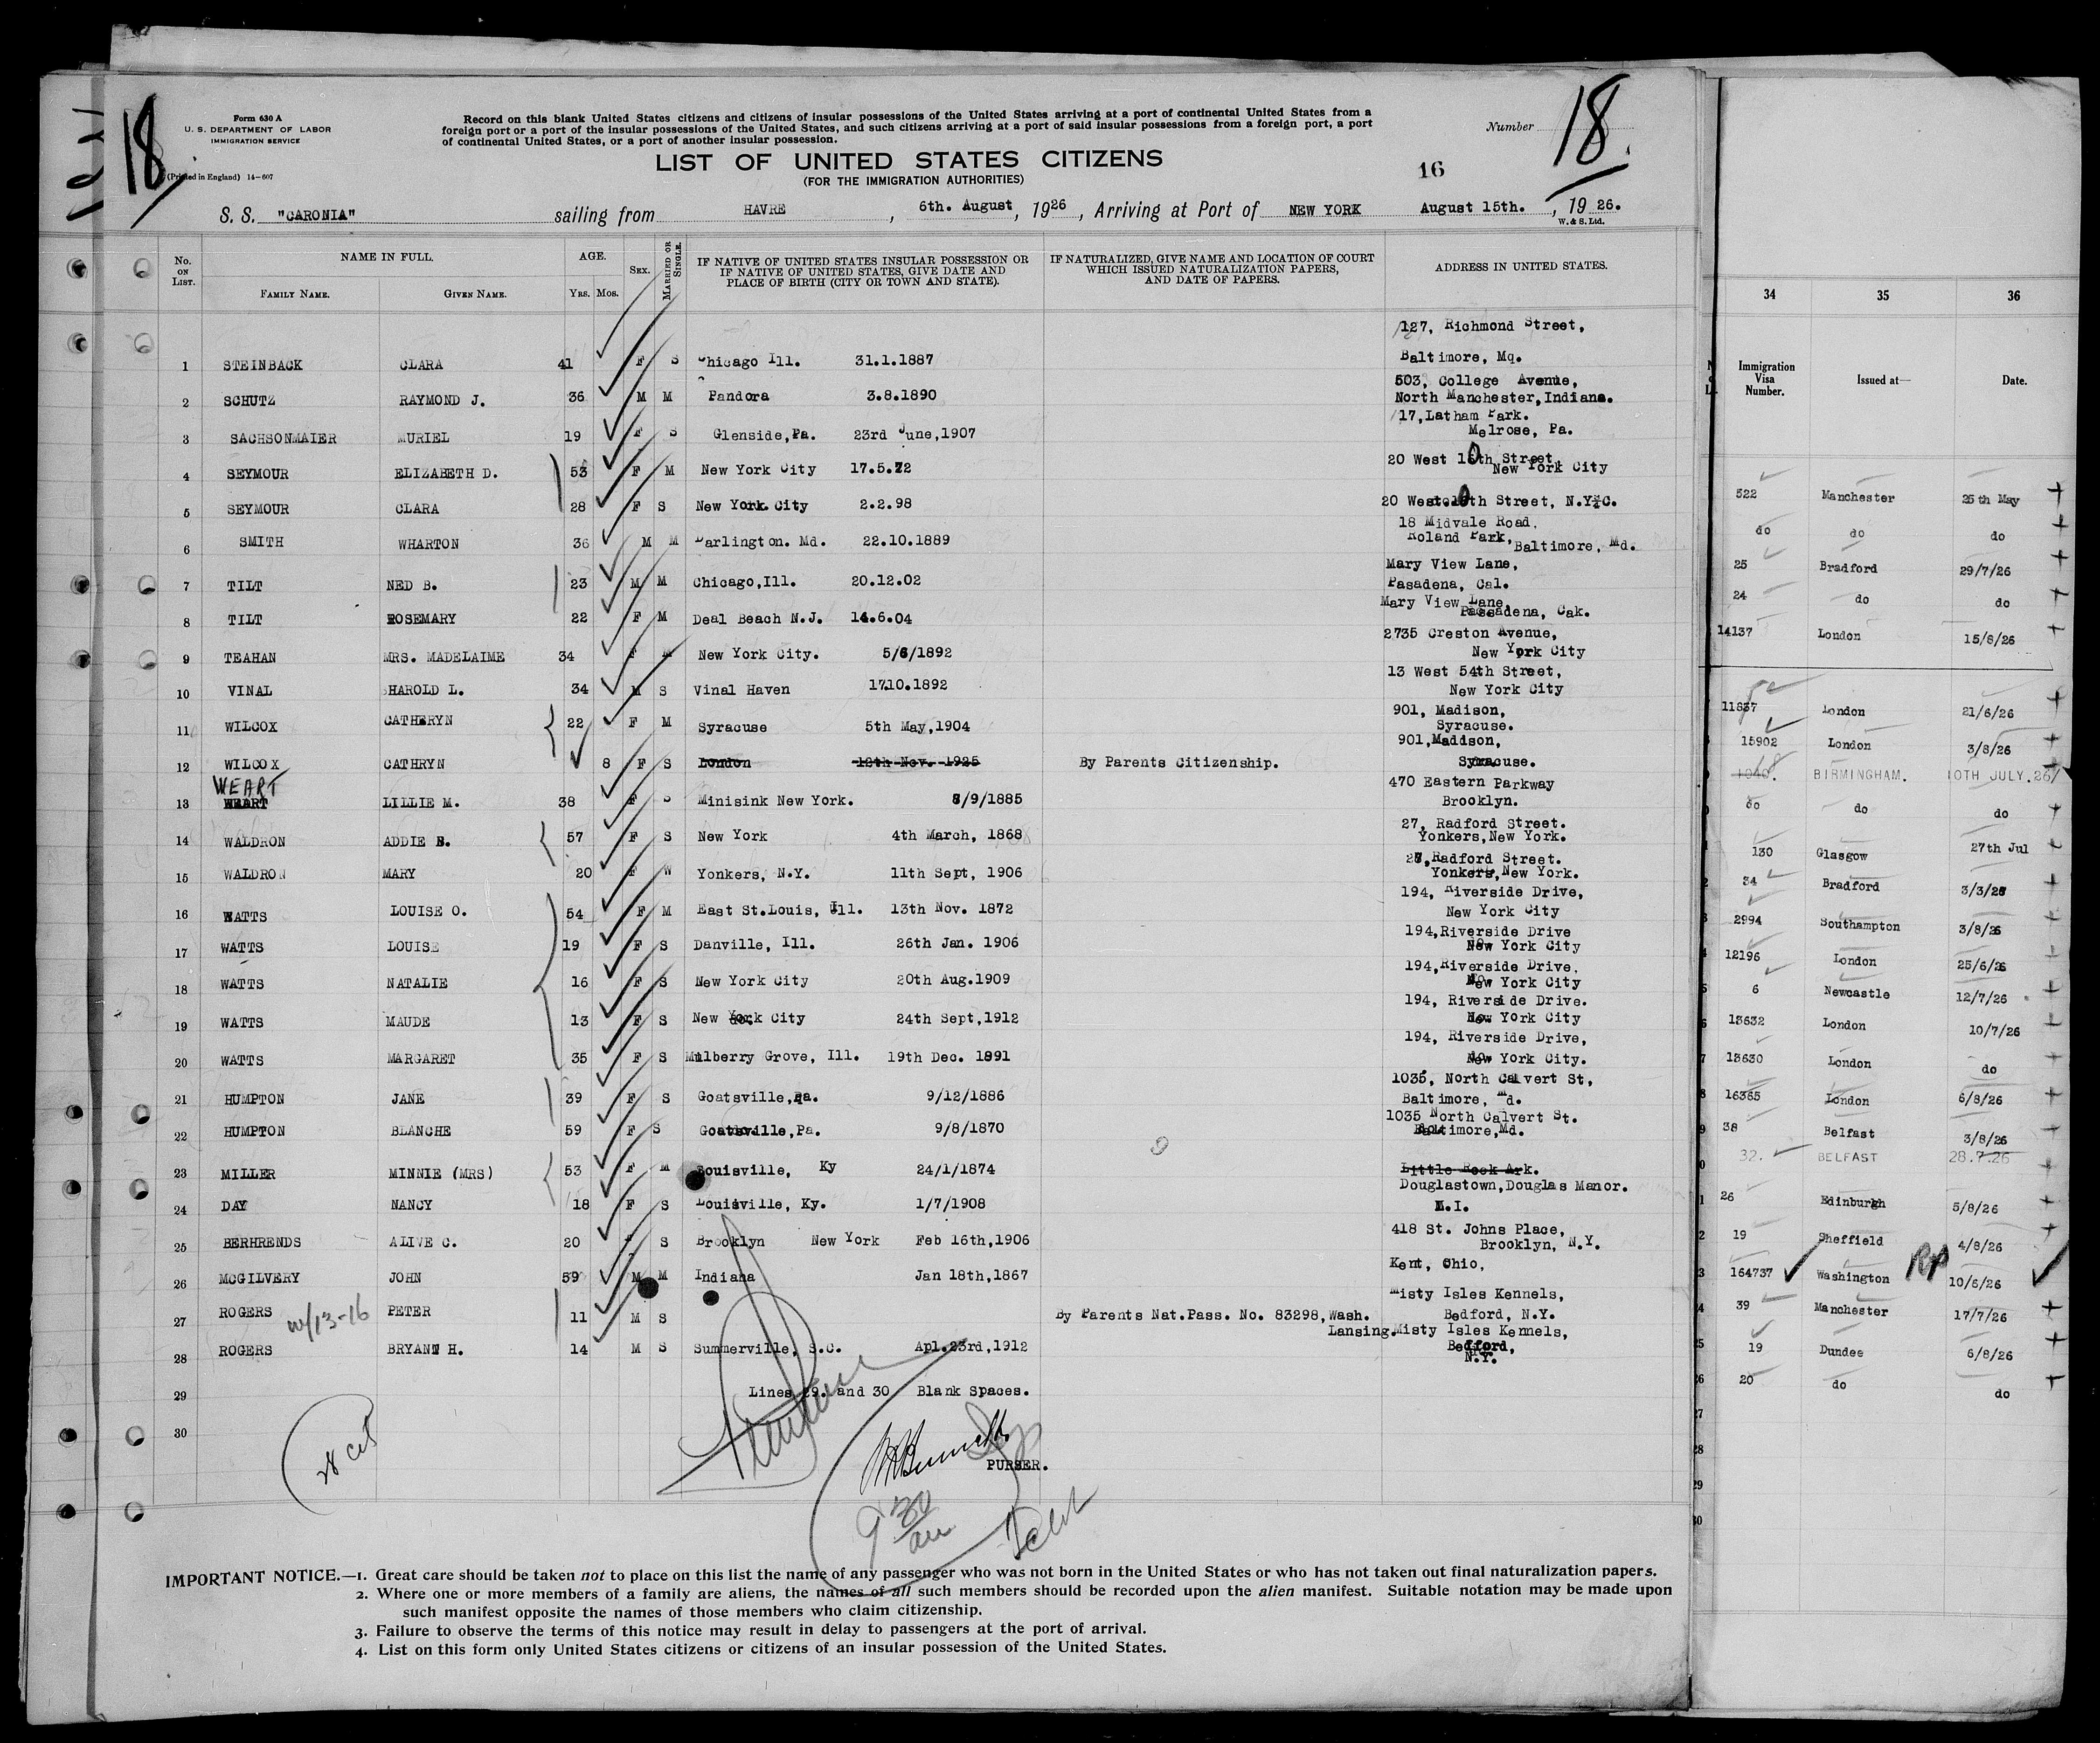 18
Form 630 A
U. S. DEPARTMENT OF LABOR
IMMIGRATION SERVICE
(Printed in England) 14-607
Record on this blank United States citizens and citizens of insular possessions of the United States arriving at a port of continental United States from a
foreign port or a port of the insular possessions of the United States, and such citizens arriving at a port of said insular possessions from a foreign port, a port
of continental United States, or a port of another insular possession.
Number 18.
LIST OF UNITED STATES CITIZENS
(FOR THE IMMIGRATION AUTHORITIES)
16
S. S. "CARONIA" sailing from HAVRE, 6th. August, 1926, Arriving at Port of NEW YORK August 15th., 1926.
W. & S. Ltd.
No. ON LIST. NAME IN FULL. FAMILY NAME. GIVEN NAME. AGE. YRS. MOS. SEX. MARRIED OR SINGLE. IF NATIVE OF UNITED STATES INSULAR POSSESSION OR IF NATIVE OF UNITED STATES, GIVE DATE AND PLACE OF BIRTH (CITY OR TOWN AND STATE). IF NATURALIZED, GIVE NAME AND LOCATION OF COURT WHICH ISSUED NATURALIZATION PAPERS, AND DATE OF PAPERS. ADDRESS IN UNITED STATES.
127, Richmond Street,
1 STEINBACK CLARA 41 F S Chicago Ill. 31.1.1887 Baltimore, Mq.
503, College Avenue,
2 SCHUTZ RAYMOND J. 36 M M Pandora 3.8.1890 North Manchester, Indiana.
17, Latham Park.
3 SACHSONMAIER MURIEL 19 F S Glenside, Pa. 23rd June, 1907 Melrose, Pa.
4 SEYMOUR ELIZABETH D. 53 F M New York City 17.5.72 20 West 10th Street New York City
5 SEYMOUR CLARA 28 F S New York City 2.2.98 20 West 10th Street, N.Y.C.
18 Midvale Road,
6 SMITH WHARTON 36 M M Darlington. Md. 22.10.1889 Roland Park, Baltimore, Md.
Mary View Lane,
7 TILT NED B. 23 M M Chicago, Ill. 20.12.02 Pasadena, Cal.
Mary View Lane,
8 TILT ROSEMARY 22 F M Deal Beach N.J. 14.6.04 Passadena, Cak.
2735 Creston Avenue,
9 TEAHAN MRS. MADELAIME 34 F M New York City. 5/6/1892 New York City
13 West 54th Street,
10 VINAL HAROLD L. 34 M S Vinal Haven 17.10.1892 New York City
901, Madison,
11 WILCOX CATHERYN 22 F M Syracuse 5th May, 1904 Syracuse.
901, Maddson,
12 WILCOX CATHRYN 8 F S London 12th Nov. 1925 By Parents Citizenship. Syracuse.
WEART
470 Eastern Parkway
13 WEART LILLIE M. 38 F S Minisink New York. 8/9/1885 Brooklyn.
27, Radford Street.
14 WALDRON ADDIE B. 57 F S New York 4th March, 1868 Yonkers, New York.
27, Radford Street.
15 WALDRON MARY 20 F W Yonkers, N.Y. 11th Sept, 1906 Yonkers, New York.
194, Riverside Drive,
16 WATTS LOUISE O. 54 F M East St.Louis, Ill. 13th Nov. 1872 New York City
194, Riverside Drive
17 WATTS LOUISE 19 F S Danville, Ill. 26th Jan. 1906 New York City
194, Riverside Drive.
18 WATTS NATALIE 16 F S New York City 20th Aug. 1909 New York City
194, Riverside Drive.
19 WATTS MAUDE 13 F S New York City 24th Sept, 1912 New York City
194, Riverside Drive,
20 WATTS MARGARET 35 F S Mulberry Grove, Ill. 19th Dec. 1891 New York City.
1035, North Calvert St,
21 HUMPTON JANE 39 F S Goatsville, Pa. 9/12/1886 Baltimore, Md.
1035 North Calvert St.
22 HUMPTON BLANCHE 59 F S Goatsville, Pa. 9/8/1870 Baltimore, Md.
23 MILLER MINNIE (MRS) 53 F M Louisville, Ky 24/1/1874 Little Rock Ark.
Douglastown, Douglas Manor.
24 DAY NANCY 18 F S Louisville, Ky. 1/7/1908 L.I.
418 St. Johns Place,
25 BERHRENDS ALIVE C. 20 F S Brooklyn New York Feb 16th, 1906 Brooklyn, N.Y.
26 MCGILVERY JOHN 59 M M Indiana Jan 18th, 1867 Kent, Ohio,
Misty Isles Kennels,
27 ROGERS PETER 11 M S By Parents Nat.Pass. No. 83298, Wash. Bedford, N.Y.
Lansing. Misty Isles Kennels,
28 ROGERS BRYANN H. 14 M S Summerville, S.C. Apl. 23rd, 1912 Bedford,
N.Y.
29 Lines 29. and 30 Blank Spaces.
30
28 cit
PURSER.
9 30 am
IMPORTANT NOTICE.—1. Great care should be taken not to place on this list the name of any passenger who was not born in the United States or who has not taken out final naturalization papers.
2. Where one or more members of a family are aliens, the names of all such members should be recorded upon the alien manifest. Suitable notation may be made upon
such manifest opposite the names of those members who claim citizenship.
3. Failure to observe the terms of this notice may result in delay to passengers at the port of arrival.
4. List on this form only United States citizens or citizens of an insular possession of the United States.
34 35 36
Immigration Visa Number. Issued at— Date.
522 Manchester 25th May
do do do
25 Bradford 29/7/26
24 do do
14137 London 15/6/26
11837 London 21/6/26
15902 London 3/8/26
BIRMINGHAM. 10TH JULY.26
do do do
130 Glasgow 27th Jul
34 Bradford 3/3/26
2994 Southampton 3/8/26
12196 London 25/6/26
6 Newcastle 12/7/26
13632 London 10/7/26
13630 London do
16365 London 6/8/26
38 Belfast 3/8/26
32. BELFAST 28.7.26
26 Edinburgh 5/8/26
19 Sheffield 4/8/26
164737 Washington RP 10/6/26
39 Manchester 17/7/26
19 Dundee 6/8/26
20 do do
27
28
29
30